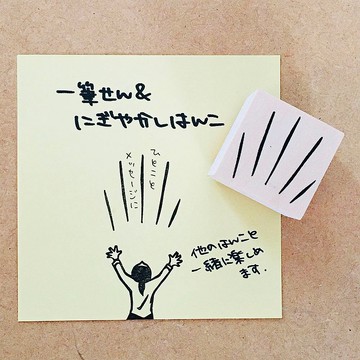 一筆せん&
にぎやかしはんこ
ひとこと
メッセージに
他のはんこと
一緒に楽しめ
ます.